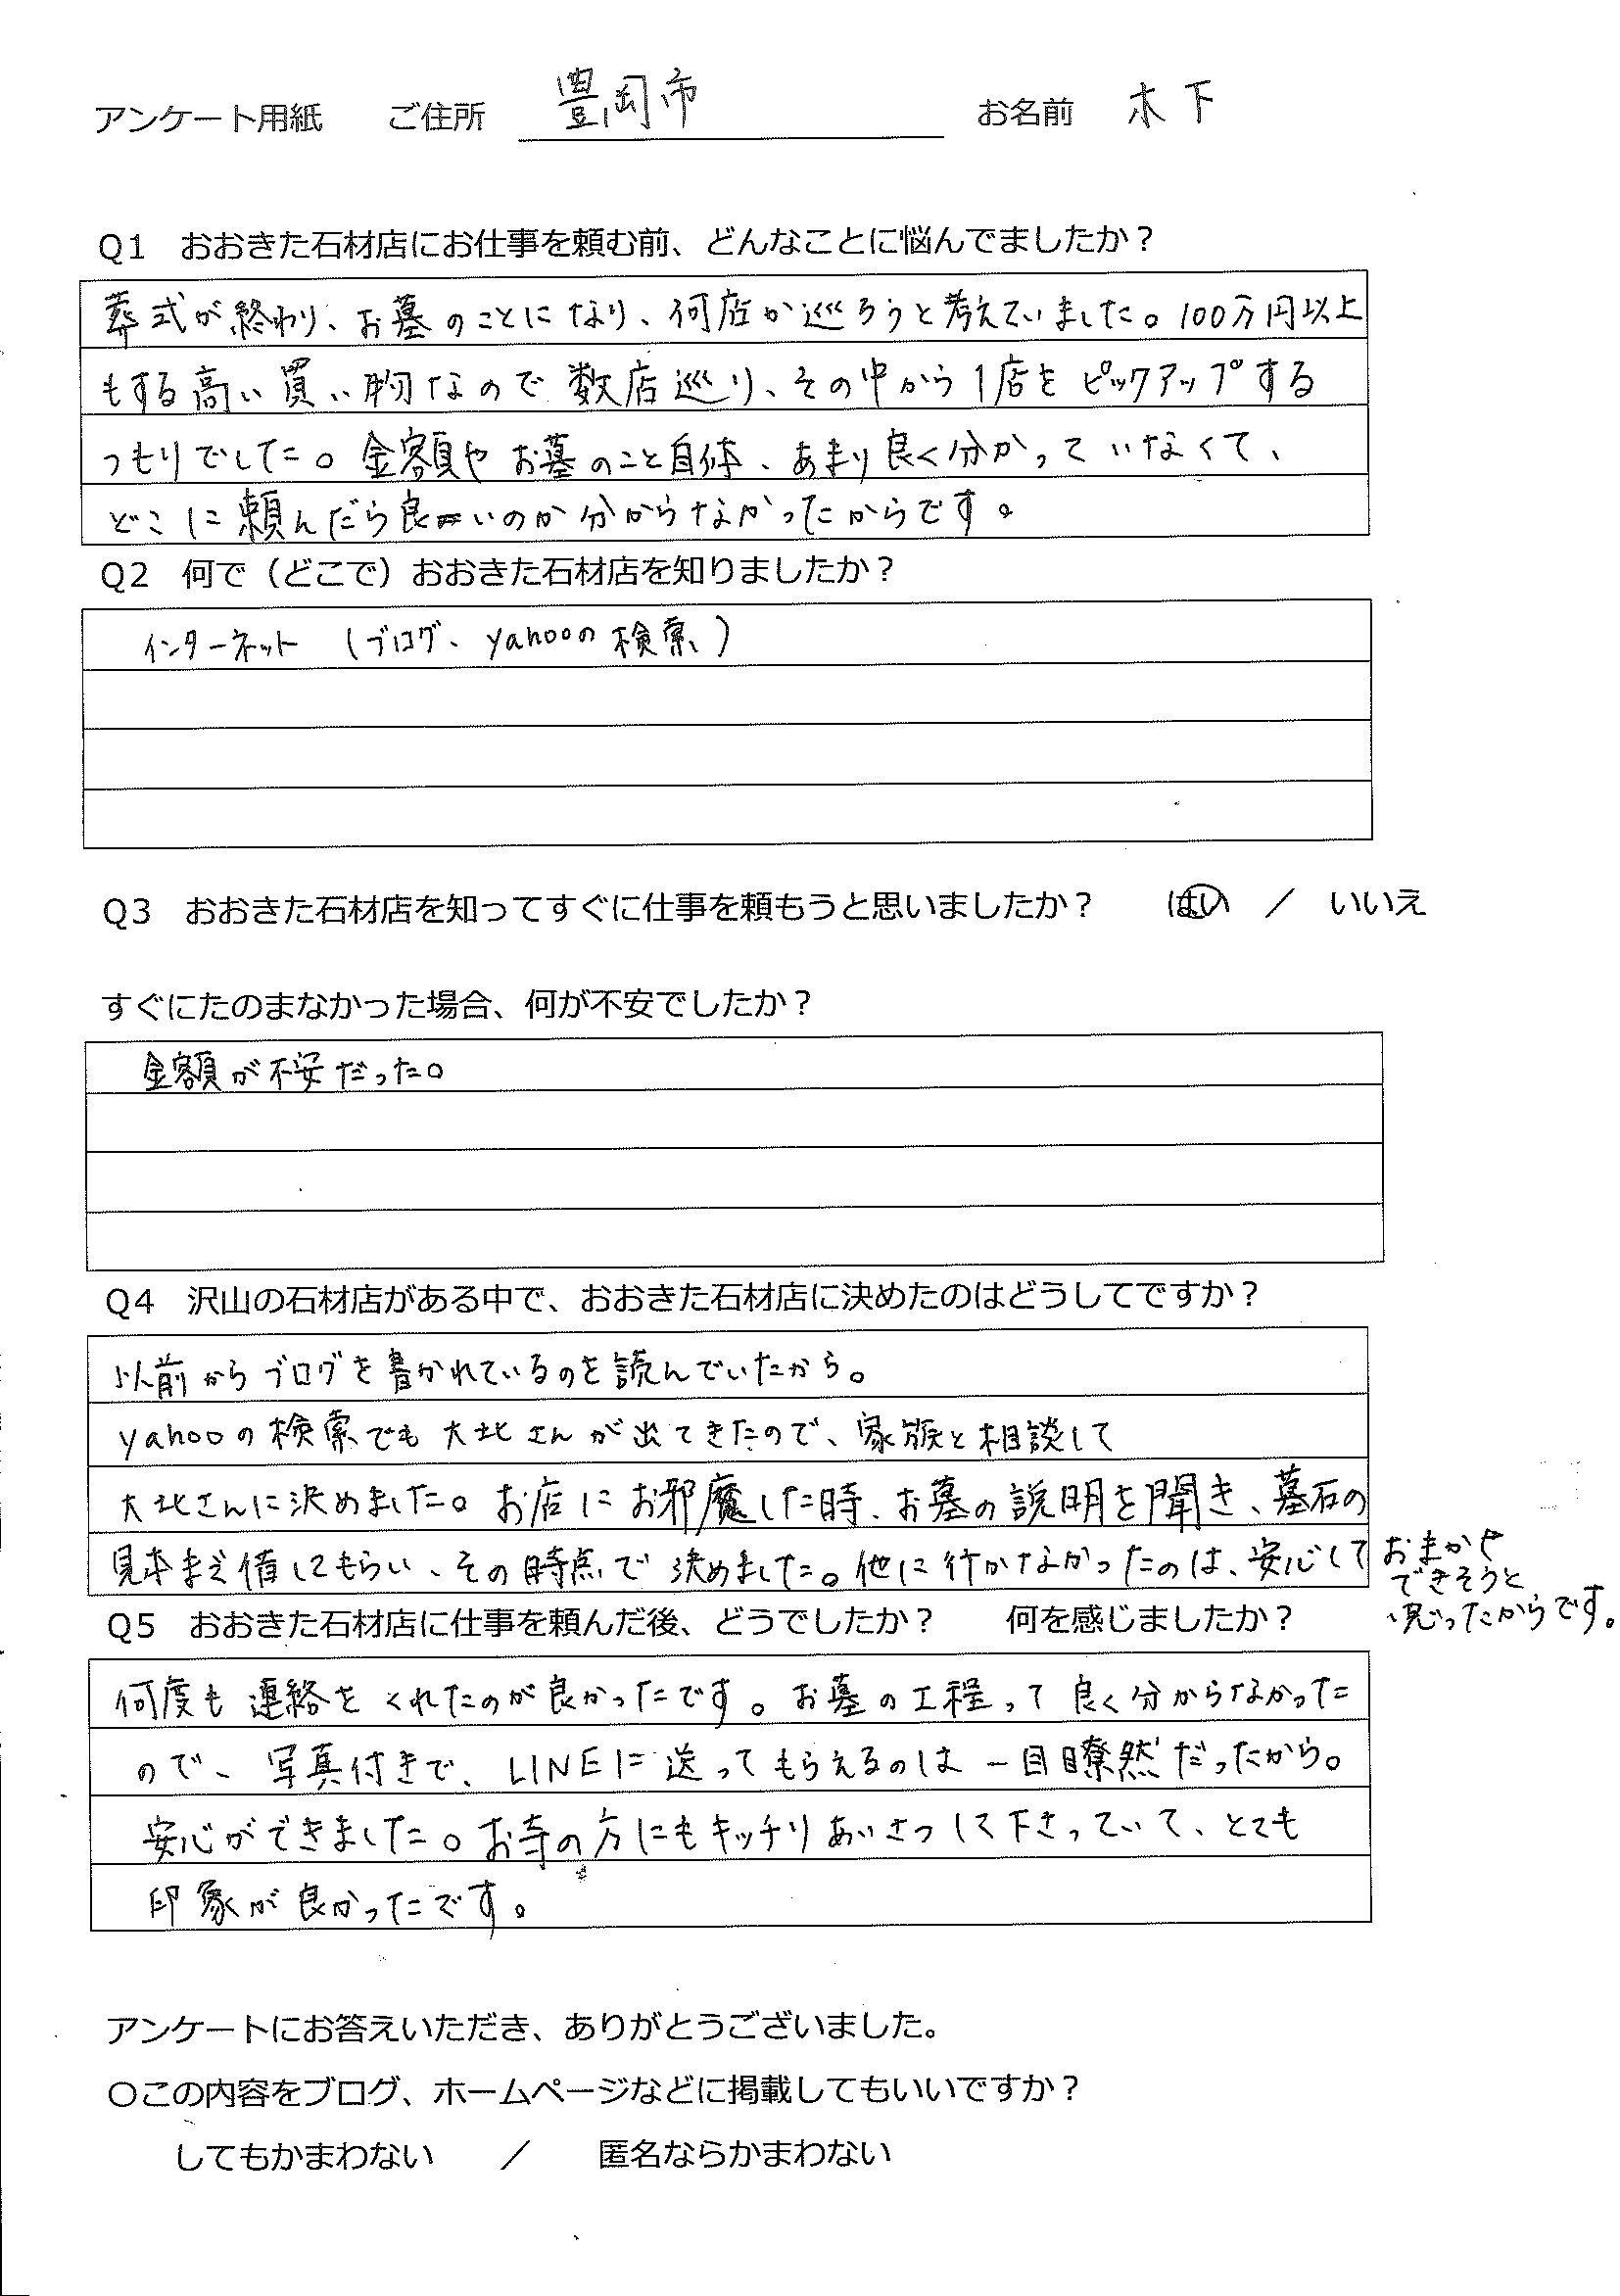 アンケート用紙　ご住所　豊岡市　お名前　木下
Q1　おおきた石材店にお仕事を頼む前、どんなことに悩んでましたか？
葬式が終わり、お墓のことになり、何店か巡ろうと考えていました。100万円以上
もする高い買い物なので数店巡り、その中から1店をピックアップする
つもりでした。金額やお墓のこと自体、あまり良く分かっていなくて、
どこに頼んだら良いのか分からなかったからです。
Q2　何で（どこで）おおきた石材店を知りましたか？
インターネット　（ブログ、yahooの検索）
Q3　おおきた石材店を知ってすぐに仕事を頼もうと思いましたか？　はい　／　いいえ
すぐにたのまなかった場合、何が不安でしたか？
金額が不安だった。
Q4　沢山の石材店がある中で、おおきた石材店に決めたのはどうしてですか？
以前からブログを書かれているのを読んでいたから。
yahooの検索でも大北さんが出てきたので、家族と相談して
大北さんに決めました。お店にお邪魔した時、お墓の説明を聞き、墓石の
見本まで借してもらい、その時点で決めました。他に行かなかったのは、安心して
おまかせ
できそうと
思ったからです。
Q5　おおきた石材店に仕事を頼んだ後、どうでしたか？　何を感じましたか？
何度も連絡をくれたのが良かったです。お墓の工程って良く分からなかった
ので、写真付きで、LINEに送ってもらえるのは一目瞭然だったから。
安心ができました。お寺の方にもキッチリあいさつして下さっていて、とても
印象が良かったです。
アンケートにお答えいただき、ありがとうございました。
〇この内容をブログ、ホームページなどに掲載してもいいですか？
してもかまわない　／　匿名ならかまわない